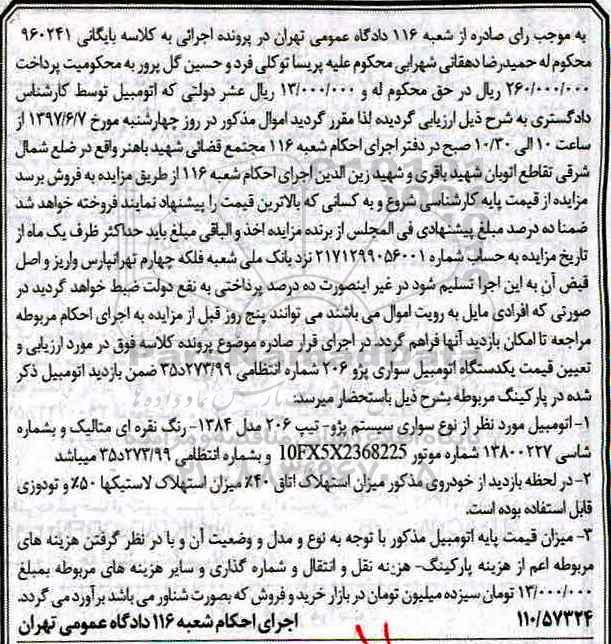 به موجب رای صادره از شعبه ۱۱۶ دادگاه عمومی تهران در پرونده اجرائی به کلاسه بایگانی ۹۶۰۲۴۱
محکوم له حمیدرضا دهقانی شهرابی محکوم علیه پریسا توکلی فرد و حسین گل پرور به محکومیت پرداخت
۲۶۰/۰۰۰/۰۰۰ ریال در حق محکوم له و ۱۳/۰۰۰/۰۰۰ ریال عشر دولتی که اتومبیل توسط کارشناس
دادگستری به شرح ذیل ارزیابی گردیده لذا مقرر گردید اموال مذکور در روز چهارشنبه مورخ ۱۳۹۷/۶/۷ از
ساعت ۱۰ الی ۱۰/۳۰ صبح در دفتر اجرای احکام شعبه ۱۱۶ مجتمع قضائی شهید باهنر واقع در ضلع شمال
شرقی تقاطع اتوبان شهید باقری و شهید زین الدین اجرای احکام شعبه ۱۱۶ از طریق مزایده به فروش برسد
مزایده از قیمت پایه کارشناسی شروع و به کسانی که بالاترین قیمت را پیشنهاد نمایند فروخته خواهد شد
ضمنا ده درصد مبلغ پیشنهادی فی المجلس از برنده مزایده اخذ و الباقی مبلغ باید حداکثر ظرف یک ماه از
تاریخ مزایده به حساب شماره ۲۱۷۱۲۹۹۰۵۶۰۰۱ نزد بانک ملی شعبه فلکه چهارم تهرانپارس واریز و اصل
قبض آن به این اجرا تسلیم شود در غیر اینصورت ده درصد پرداختی به نفع دولت ضبط خواهد گردید در
صورتی که افرادی مایل به رویت اموال می باشند می توانند پنج روز قبل از مزایده به اجرای احکام مربوطه
مراجعه تا امکان بازدید آنها فراهم گردد. در اجرای قرار صادره موضوع پرونده کلاسه فوق در مورد ارزیابی و
تعیین قیمت یکدستگاه اتومبیل سواری پژو ۲۰۶ شماره انتظامی ۲۷۳/۹۹د۳۵ ضمن بازدید اتومبیل ذکر
شده در پارکینگ مربوطه بشرح ذیل باستحضار میرسد:
۱- اتومبیل مورد نظر از نوع سواری سیستم پژو- تیپ ۲۰۶ مدل ۱۳۸۴- رنگ نقره ای متالیک و بشماره
شاسی ۱۳۸۰۰۲۲۷ شماره موتور 10FX5X2368225 و بشماره انتظامی ۲۷۳/۹۹د۳۵ میباشد
۲- در لحظه بازدید از خودروی مذکور میزان استهلاک اتاق ۴۰٪ میزان استهلاک لاستیکها ۵۰٪ و تودوزی
قابل استفاده بوده است.
۳- میزان قیمت پایه اتومبیل مذکور با توجه به نوع و مدل و وضعیت آن و با در نظر گرفتن هزینه های
مربوطه اعم از هزینه پارکینگ- هزینه نقل و انتقال و شماره گذاری و سایر هزینه های مربوطه بمبلغ
۱۳/۰۰۰/۰۰۰ تومان سیزده میلیون تومان در بازار خرید و فروش که بصورت شناور می باشد برآورد می گردد.
۱۱۰/۵۷۳۲۴ اجرای احکام شعبه ۱۱۶ دادگاه عمومی تهران